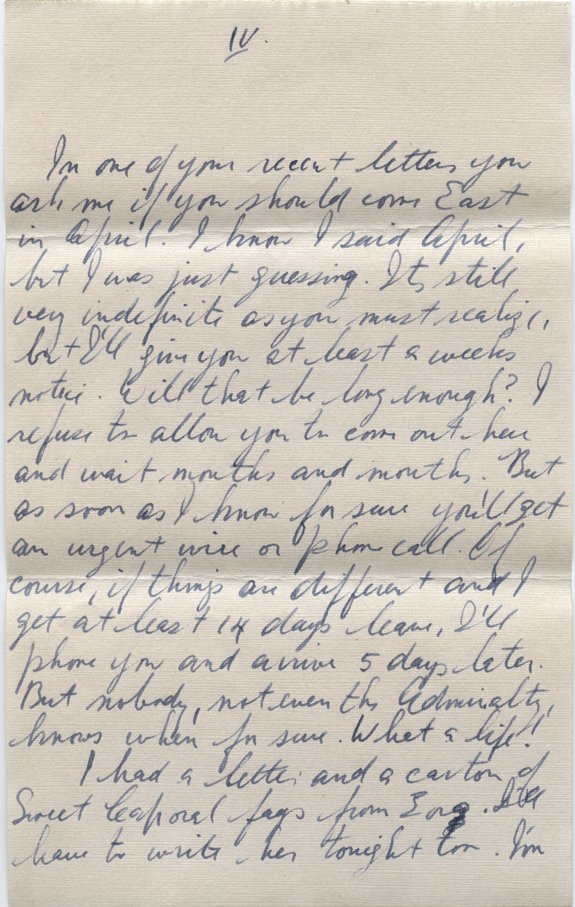 IV.
In one of your recent letters you
ask me if you should come East
in April. I know I said April,
but I was just guessing. Its still
very indefinite as you must realize,
but I'll give you at least a weeks
notice. Will that be long enough? I
refuse to allow you to come out here
and wait months and months. But
as soon as I know for sure you'll get
an urgent wire or phone call. Of
course, if things are different and I
get at least 14 days leave, I'll
phone you and arrive 5 days later.
But nobody, not even the Admiralty,
knows when for sure. What a life!
I had a letter and a carton of
Sweet Caporal fags from . I'll
have to write her tonight too. I'm